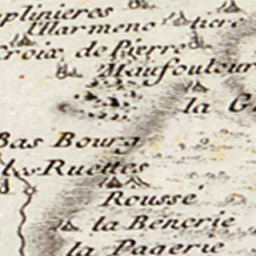 plinieres
Marmeno
tiere
Croix de Pierre
Maufouleur
la G
Bas Bourg
les Ruettes
Roussé
la Bénerie
la Pagerie